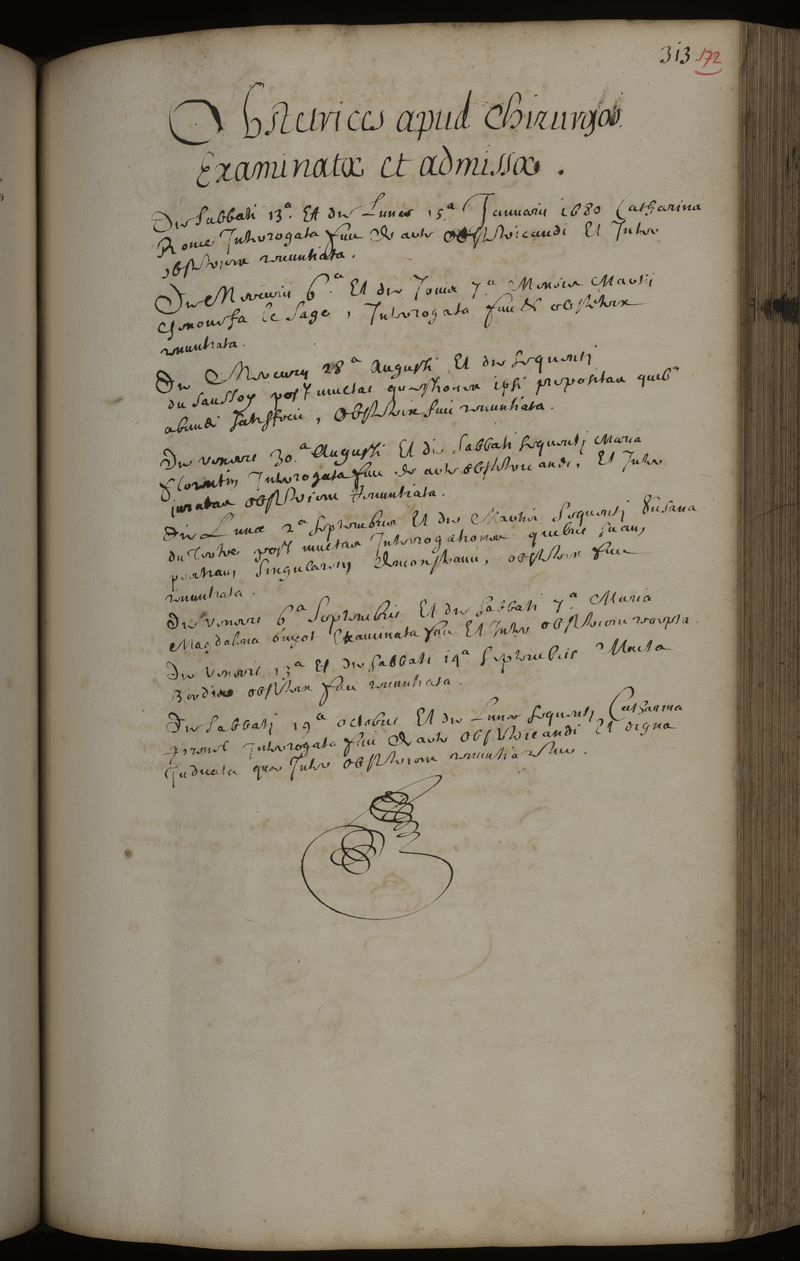 313 172
Obstetrices apud Chirurgos
Examinatæ et admissæ .
Die Sabbati 13ª. Et die Lunæ 15ª Januarii 1680 Catharina
Ronce Interrogata fuit de arte obstetricandi Et Inter
obstetrices renuntiata .
Die Mercurii 6ª Et die Jovis 7ª Mensis Martij
Genovefa le Sage , Interrogata fuit & obstetrix
renuntiata .
Die Mercurij 28ª Augusti Et die sequentj
du Saussoy post multas quæstiones ipsi propositas quib9
abunde satisfecit , Obstetrix fuit renuntiata .
Die veneris 30ª Augusti Et die Sabbati sequentj Maria
Florentin Interrogata fuit de arte obstetricandi , Et Inter
juratas obstetrices renuntiata .
Die Lunæ 2ª Septembris Et die Martis sequentj Susana
du Tertre post multas Interrogationes quibus suam
peritiam singularem demonstravit , obstetrix fuit
renuntiata .
Die veneris 6ª Septembris Et die Sabbati 7ª Maria
Magdalena Examinata fuit Et Inter obstetrices recepta .
Die veneris 13ª Et die Sabbati 14ª Septembris
obstetrix fuit renuntiata .
Die Sabbatj 19ª octobris Et die Lunæ sequentj Catharina
Interrogata fuit de arte Obstetricandi Et digna
Judicata quæ Inter obstetrices renuntiaretur .